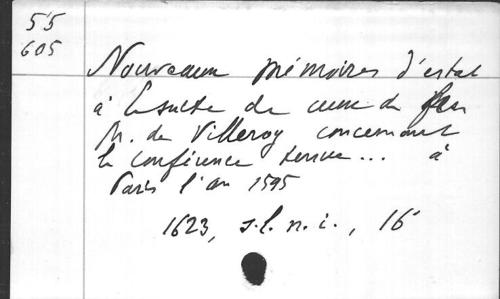 55
605
Nouveaux mémoires d'estat
à la suite de ceux de feu
M. de Villeroy concernant
la conférence tenue... à
Paris l'an 1595
1623, s.l.n.i., 16°